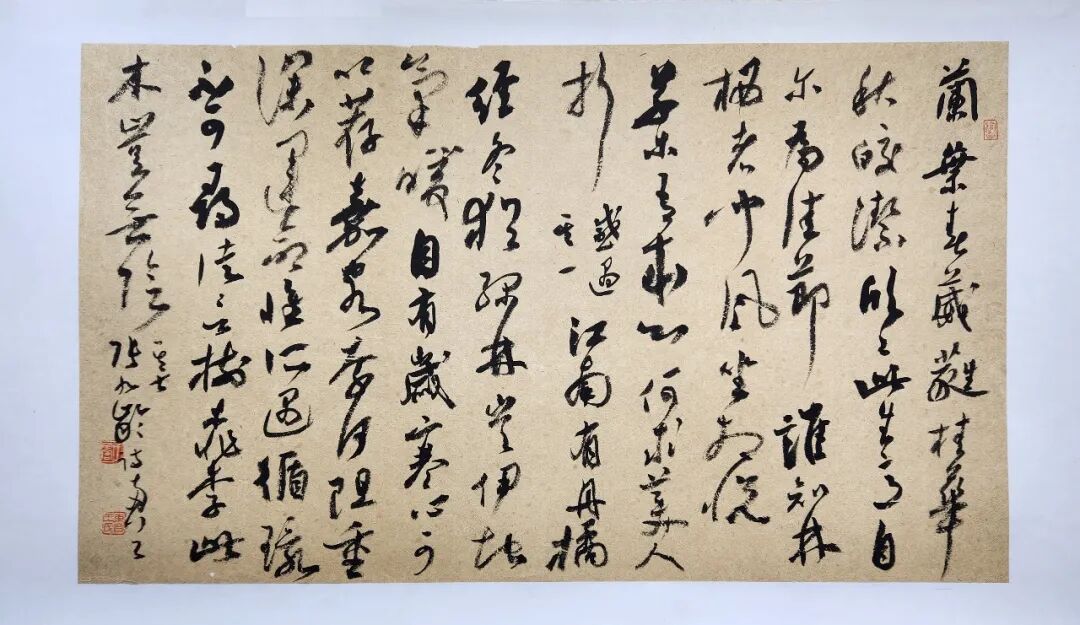 蘭葉春葳蕤桂華
秋皎潔欣〻此生意自
尔為佳節誰知林
栖者聞風坐相悦
草木有本心何求美人
折感遇其一江南有丹橘
經冬猶緑林豈伊地
氣暖自有歲寒心可
以薦嘉客奈何阻重
深運命惟所遇循環
不可尋徒言樹桃李此
木豈無陰其七
張九齡詩